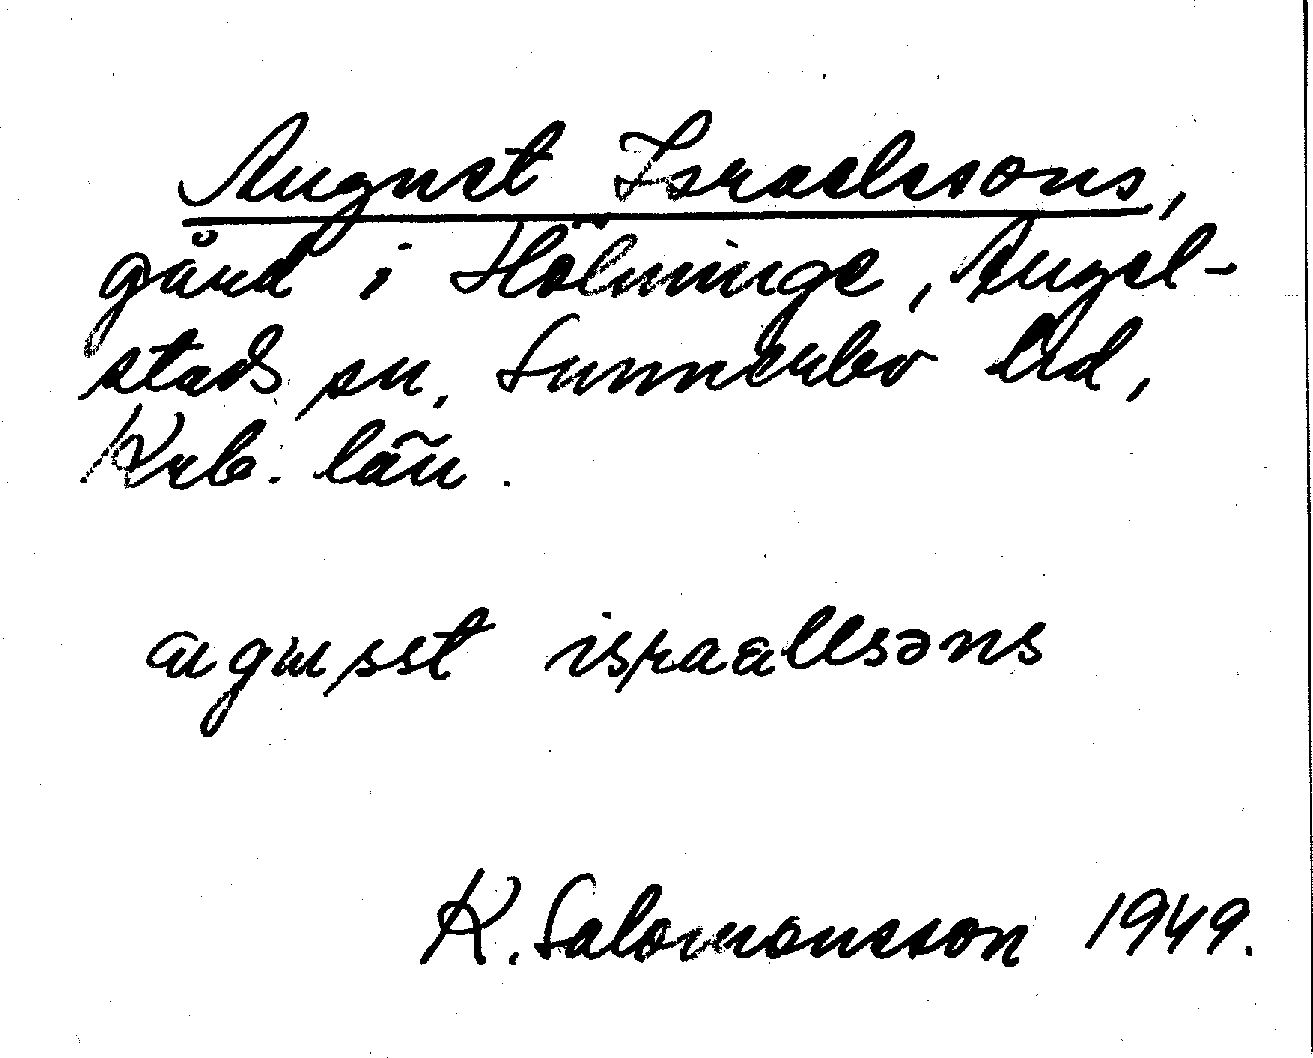 August Israelssons,
gård i Hölminge, Angel-
stads sn, Sunnerbo hd,
Krb. län.
israallsəns
K. Salomonsson 1949.